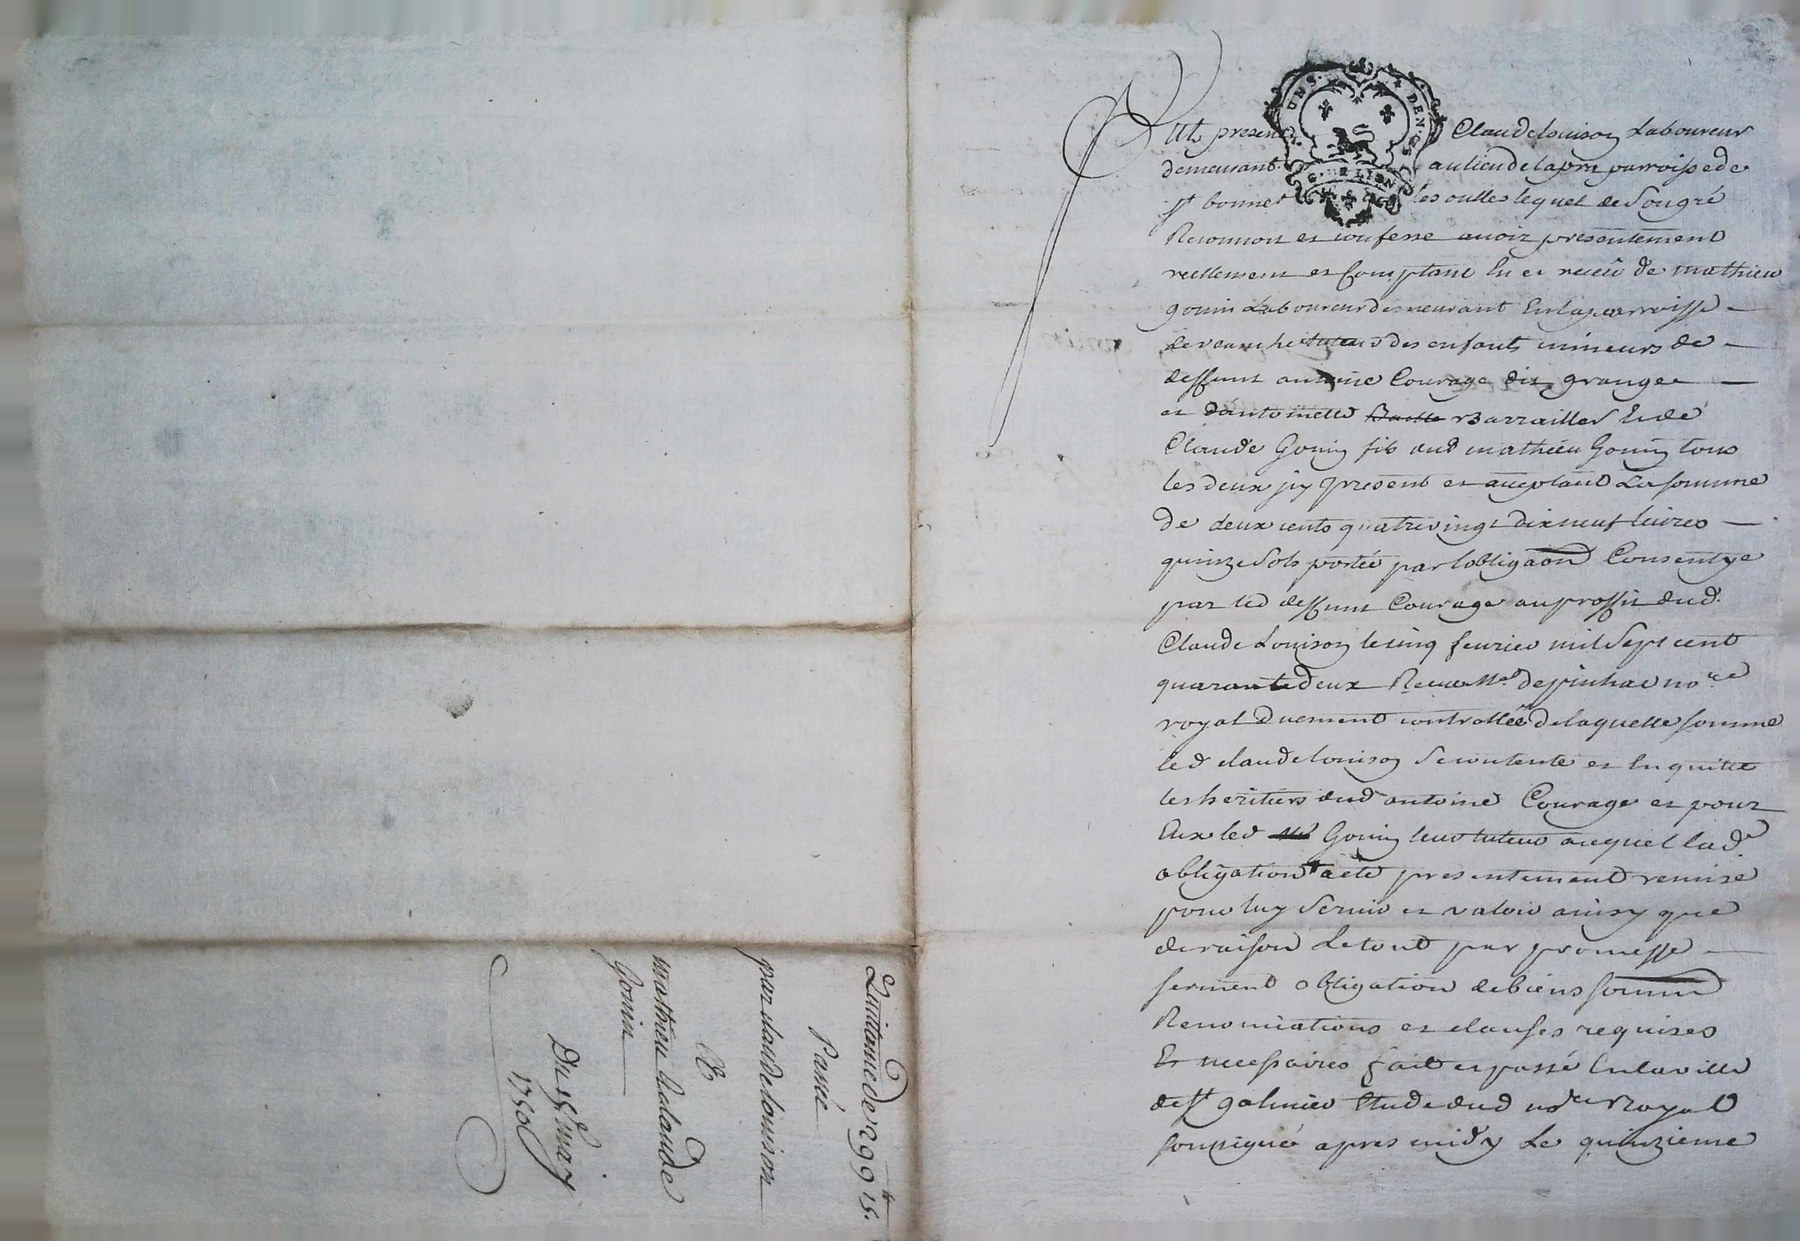 Quittance de 299 lt 15 s.
Passé
par claude louison
A
mathieu & claude
Gonin
Du 15e may
1750
G. DE LION
Fut present Claude Louison Laboureur
demeurant au lieu de lapra parroisse de
st bonnet les oulles lequel de son gré
Reconnoit et confesse avoir presentement
reellement et Comptant Eu et receu de mathieu
gonin Laboureur demeurant En la parroisse
de veauche tuteur des enfants mineurs de
deffunt antoine Courage dit grange
et d'antoinette Barrailler Et de
Claude Gonin fils aud mathieu Gonin tous
les deux jcy present et acceptant La somme
de deux cents quatre vingt dix neuf livres
quinze sols portée par lobligaon Consentye
par led deffunt Courage au proffit dud.
Claude Louison le cinq fevrier mil sept cent
quarante deux Receue Me depinhac nore
royal duement controllée de laquelle somme
led claude louison se contente et En quitte
les heritiers dud antoine Courage et pour
Eux led Gonin leur tuteur auquel lad.e
obligation a eté presentement remise
pour luy servir et valoir ainsy que
de raison Le tout par promesse
serment obligation de biens soumm
Renonciations et clauses requises
Et necessaires fait et passé En la ville
de st galmier Etude dud nore Royal
soussigné apres midy Le quinzieme